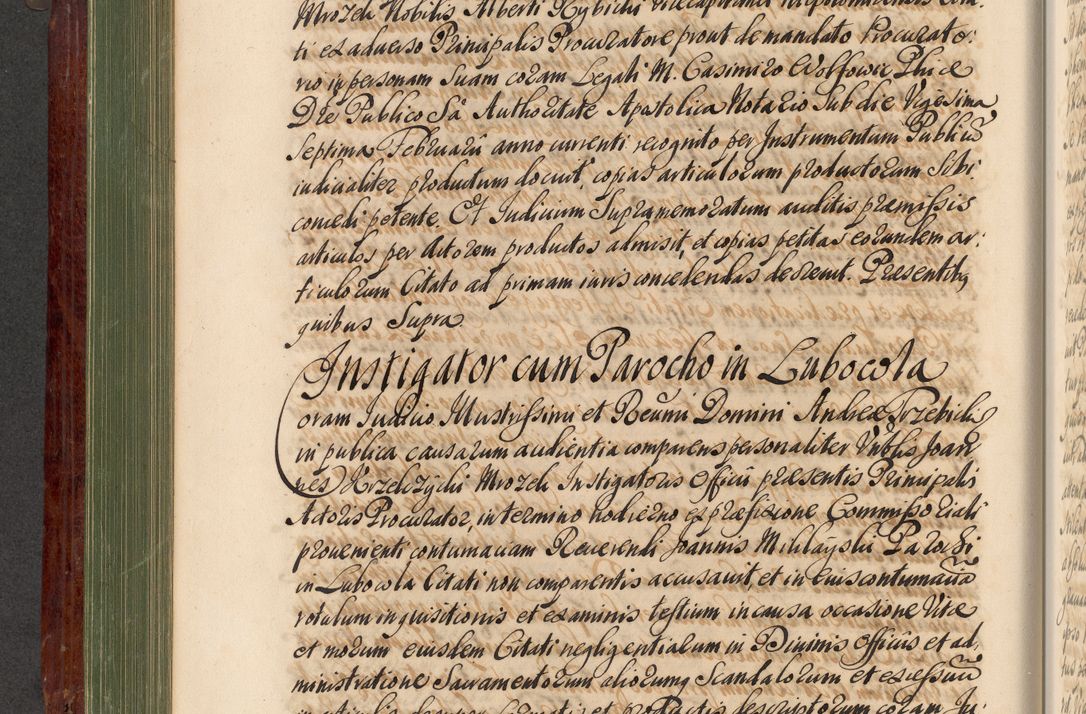 Mrozek Nobilis Alberti Rybicki Vicecapitanei
ti ex aduerso Principalis Procuratore prout de mandato Procurato:
rio in personam Suam coram Legali M. Casimiro Wolfowic Phiæ
Dre Publico Sa Authoritate Apostolica Notario Sub die Vigesima
Septima Februarii anno currenti recognito per Instrumentum Publicũ
iudicialiter productum docuit, copias articulorum productorum Sibi
concedi petente. Et Iudicium Supramemoratum auditis præmissis
articulos per Actorem productos admisit, et copias petitas eorundem ar:
ticulorum Citato ad primam iuris concedendas decreuit. Præsentibq
quibus Supra.
Instigator cum Parocho in Lubocola
Coram Iudicio Illustrissimi et Reũmi Domini Andreæ Trzebicki
in publica causarum audientia comparens personaliter Nobilis Joan
nes Krzelczycki Mrozek Instigatoris Officii præsentis Principalis
Actoris Procurator, in termino hodierno ex præfixione Commissoriali
prouenienti contumaciam Reuerendi Joannis Mikłayski Parochi
in Lubocola Citati non comparentis accusauit, et in eius contumaciã
rotulum inquisitionis et examinis testium in causa occasione Vitæ
et morum eiusdem Citati negligentiarum in Diuinis Officiis et ad,
ministratione Sacramentorum aliorumq Scandalorum et excessuũ
et productis descriptorum coram Iu: